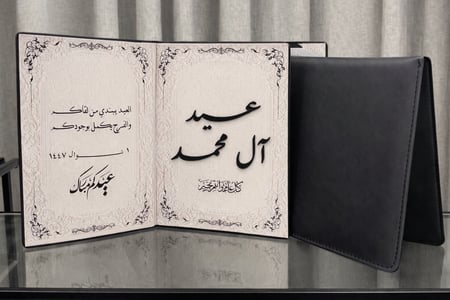 عيد
آل محمد
كل عام وأنتم بخير
العيد يبتدي من لقاكم
والفرح يكمل بوجودكم
١ شوال ١٤٤٧
عيدكم مبارك